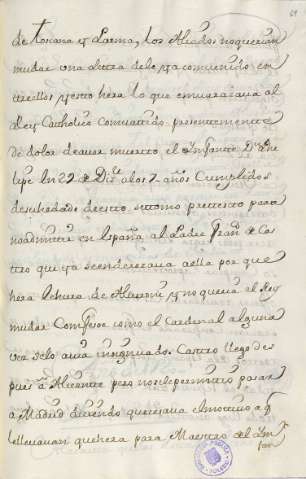 de toscana y Parma, los Aliados no querian
mudar una letra delo ya convenido en
tre ellos y esto hera lo que embarazava al
Rey Catholico convatido presentemente
de dolor de aver muerto el Infante Dn Phe
lipe en 29 de Dice alos 7 años Cumplidos
de su hedad de esto se tomo pretexto para
no admitir en España al Padre Franco de Cas
tro que ya se encaminava a ella por que
hera hechura de Alveroni y no queria el Rey
mudar Confesor como el Cardenal alguna
vez selo avia insignuado. Castro llego des
pues a Alicante pero no se le permitio pasar
a Madrid diciendo que cesava el motivo a q
le llevavan que hera para Maestro del In
fan